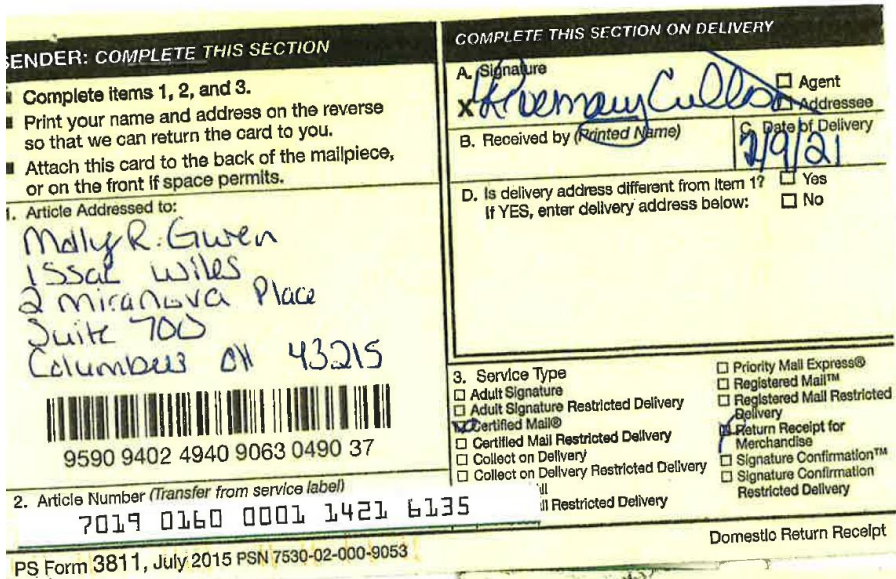 SENDER: COMPLETE THIS SECTION
Complete items 1, 2, and 3.
Print your name and address on the reverse
so that we can return the card to you.
Attach this card to the back of the mailpiece,
or on the front if space permits.
1. Article Addressed to:
Molly R. Gwen
Issac Wiles
2 Miranova Place
Suite 700
Columbus OH 43215
9590 9402 4940 9063 0490 37
2. Article Number (Transfer from service label)
7019 0160 0001 1421 6135
PS Form 3811, July 2015 PSN 7530-02-000-9053
COMPLETE THIS SECTION ON DELIVERY
A. Signature
X Rosemary
Agent
Addressee
B. Received by (Printed Name)
C. Date of Delivery
2/9/21
D. Is delivery address different from item 1? Yes
If YES, enter delivery address below: No
3. Service Type
Adult Signature
Adult Signature Restricted Delivery
Certified Mail®
Certified Mail Restricted Delivery
Collect on Delivery
Collect on Delivery Restricted Delivery
Restricted Delivery
Priority Mail Express®
Registered Mail™
Registered Mail Restricted
Delivery
Return Receipt for
Merchandise
Signature Confirmation™
Signature Confirmation
Restricted Delivery
Domestic Return Receipt